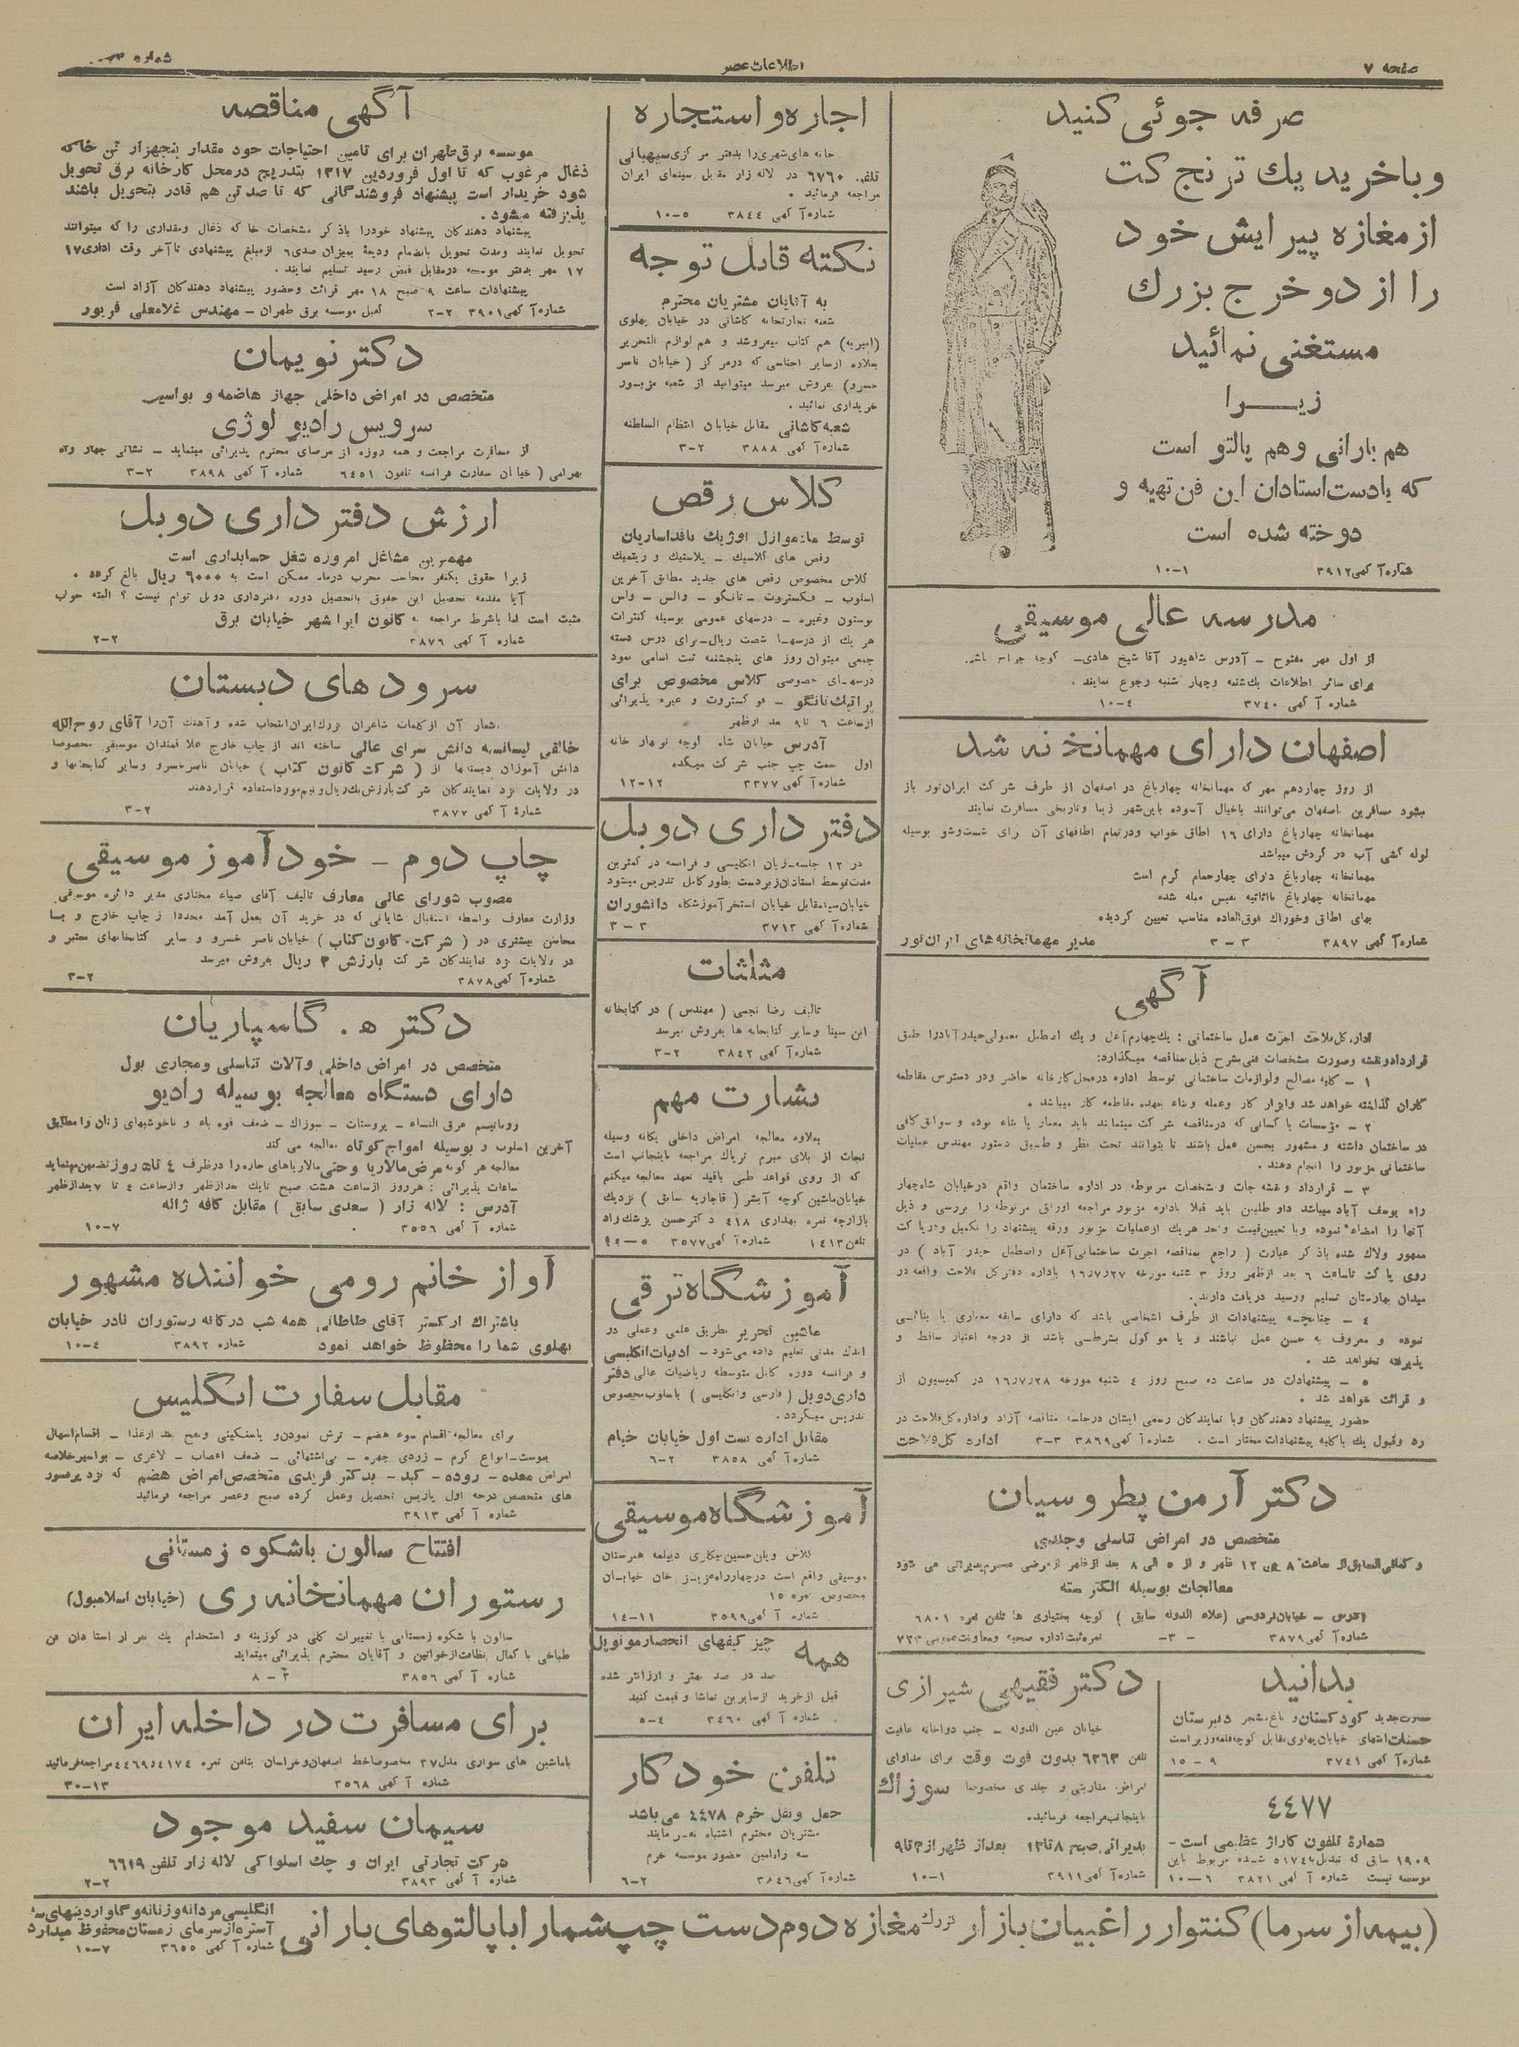 صفحه ۷
اطلاعات عصر
شماره
صرفه جوئی کنید
و با خرید یک ترنچ کت
از مغازه پیرایش خود
را از دو خرج بزرك
مستغنی نمائید
زیــرا
هم بارانی و هم پالتو است
که بادست استادان این فن تهیه و
دوخته شده است
شماره آگهی ۳۹۱۲ ۱-۱۰
مدرسه عالی موسیقی
از اول مهر مفتوح – آدرس شاهپور آقا شیخ هادی – کوچه
برای سائر اطلاعات یکشنبه و چهار شنبه رجوع نمایند .
شماره آگهی ۳۷۴۰ ۴-۱۰
اصفهان دارای مهمانخانه شد
از روز چهاردهم مهر که مهمانخانه چهارباغ در اصفهان از طرف شرکت ایران تور باز
میشود مسافرین باصفهان می‌توانند باخیال آسوده باین شهر زیبا و تاریخی مسافرت نمایند
مهمانخانه چهارباغ دارای ۱۶ اطاق خواب و در تمام اطاقهای آن برای شست‌وشو بوسیله
لوله کشی آب در گردش میباشد
مهمانخانه چهارباغ دارای چهار حمام گرم است
مهمانخانه چهارباغ با اثاثیه نفیس مبله شده
بهای اطاق و خوراك فوق‌العاده مناسب تعیین گردیده
شماره آگهی ۳۸۹۷ ۳ – ۳ مدیر مهمانخانه‌های ایران تور
آگهی
اداره کل فلاحت اجرت عمل ساختمانی : یک چهارم آغل و یک اصطبل معمولی حیدرآباد را طبق
قرارداد و نقشه و صورت مشخصات فنی بشرح ذیل مناقصه میگذارد:
۱ – کلیه مصالح و لوازمات ساختمانی توسط اداره در محل کارخانه حاضر و در دسترس مقاطعه
کاران گذاشته خواهد شد و ابزار کار و عمله و بناء بعهده مقاطعه کار میباشد .
۲ – مؤسسات یا کسانی که در مناقصه شرکت مینمایند باید معمار یا بناء بوده و سوابق کافی
در ساختمان داشته و مشهور بحسن عمل باشند تا بتوانند تحت نظر و طبق دستور مهندس عملیات
ساختمانی مزبور را انجام دهند .
۳ – قرارداد و نقشه جات و مشخصات مربوطه در اداره ساختمان واقع در خیابان شاه چهار
راه یوسف آباد میباشد داوطلبین باید قبلا باداره مزبور مراجعه اوراق مربوطه را بررسی و ذیل
آنها را امضاء نموده و با تعیین قیمت واحد هر یک از عملیات مزبور ورقه پیشنهاد را تکمیل و در پاکت
ممهور ولاك شده باذکر عبارت ( راجع بمناقصه اجرت ساختمانی آغل واصطبل حیدر آباد ) در
روی پاکت تا ساعت ۶ بعد از ظهر روز ۳ شنبه مورخه ۱۶/۷/۲۷ باداره دفتر کل فلاحت واقعه در
میدان بهارستان تسلیم و رسید دریافت دارند.
۴ – چنانچه پیشنهادات از طرف اشخاصی باشد که دارای سابقه معماری یا بنائی
نبوده و معروف به حسن عمل نباشند و یا موکول بشرطی باشد از درجه اعتبار ساقط و
پذیرفته نخواهد شد .
۵ – پیشنهادات در ساعت ده صبح روز ۴ شنبه مورخه ۱۶/۷/۲۸ در کمیسیون از
و قرائت خواهد شد .
حضور پیشنهاد دهندگان و یا نمایندگان رسمی ایشان در جلسه مناقصه آزاد و اداره کل فلاحت در
رد و قبول یک یا کلیه پیشنهادات مختار است . شماره آگهی ۳۸۶۹ ۳-۳ اداره کل فلاحت
دکتر آرمن پطروسیان
متخصص در امراض تناسلی و جلدی
و کمافی‌السابق از ساعت ۸ الی ۱۲ ظهر و از ۵ الی ۸ بعد از ظهر از مرضی محترم پذیرائی می شود
معالجات بوسیله الکتریسته
آدرس – خیابان فردوسی ( علاء الدوله سابق ) کوچه بختیاری ها تلفن نمره ۶۸۰۱
شماره آگهی ۳۸۷۹ ۳- نمره ثبت اداره صحیه و معاونت عمومی ۷۲۳
بدانید
کودکستان و باغ دبیرستان
حسنات انتهای خیابان پهلوی مقابل کوچه قلعه وزیر است
شماره آگهی ۳۷۴۱ ۹ – ۱۵
۴۴۷۷
شمارۀ تلفون گاراژ عظیمی است –
۱۹۰۹ سابق که تبدیل ۵۱۷۴ شده مربوط باین
موسسه نیست شماره آگهی ۳۸۲۱ ۶–۱۰
دکتر فقیهی شیرازی
خیابان عین الدوله – جنب دواخانه عافیت
تلفن ۶۲۶۳ بدون فوت وقت برای مداوای
امراض مقاربتی و جلدی مخصوصا سوزاك
باینجانب مراجعه فرمائید.
پذیرائی صبح ۸ تا ۱۲ بعد از ظهر از ۳ تا ۹
شماره آگهی ۳۹۱۱ ۱-۱۰
اجاره و استجاره
خانه های شهری را بدفتر مرکزی سپهبانی
تلفن ۶۷۶۰ در لاله زار مقابل سینمای ایران
مراجعه فرمائید .
شماره آگهی ۳۸۴۴ ۵-۱۰
نکته قابل توجه
به آقایان مشتریان محترم
شعبه تجارتخانه کاشانی در خیابان پهلوی
(امیریه) هم کتاب میفروشد و هم لوازم التحریر
بعلاوه از سایر اجناسی که در مرکز ( خیابان ناصر
خسرو) بفروش میرسد میتوانید از شعبه مزبور
خریداری نمائید .
شعبه کاشانی مقابل خیابان انتظام السلطنه
شماره آگهی ۳۸۸۸ ۲-۳
کلاس رقص
توسط مادموازل اوژنیک باغداساریان
رقص های کلاسیك – پلاستیك و ریتمیك
کلاس مخصوص رقص های جدید مطابق آخرین
اسلوب – فکستروت – تانگو – والس – والس
بوستون وغیره – درسهای عمومی بوسیله کنترات
هر یک از درسها شصت ریال – برای درس دسته
جمعی میتوان روز های پنجشنبه ثبت اسامی نمود
درسهای خصوصی کلاس مخصوص برای
پراتیك تانگو – فوکستروت و غیره پذیرائی
از ساعت ۶ تا ۹ بعد از ظهر
آدرس خیابان شاه کوچه نوبهار خانه
اول سمت چپ جنب شرکت میکده
شماره آگهی ۳۳۷۷ ۱۲–۱۲
دفتر داری دوبل
در ۱۲ جلسه – زبان انگلیسی و فرانسه در کمترین
مدت توسط استادان زبردست بطور کامل تدریس میشود
خیابان سپه مقابل خیابان استخر آموزشگاه دانشوران
شماره آگهی ۳۷۱۲ ۳ – ۳
مثلثات
تالیف رضا نجمی ( مهندس ) در کتابخانه
ابن سینا و سایر کتابخانه ها بفروش میرسد
شماره آگهی ۳۸۴۲ ۲-۳
بشارت مهم
بعلاوه معالجه امراض داخلی یگانه وسیله
نجات از بلای مبرم تریاك مراجعه باینجانب است
که از روی قواعد طبی باقید تعهد معالجه میکنم
خیابان ماشین کوچه آبشر ( قاجاریه سابق ) نزدیك
بازارچه نمره بهداری ۴۱۸ دکتر حسن پزشك زاد
تلفن ۱۴۱۳ شماره آگهی ۳۵۷۷
آموزشگاه ترقی
ماشین تحریر بطریق علمی و عملی در
اندك مدتی تعلیم داده می‌شود – ادبیات انگلیسی
و فرانسه دوره کامل متوسطه ریاضیات عالی دفتر
داری دوبل ( فارسی و انگلیسی ) باسلوب مخصوص
تدریس میگردد .
مقابل اداره ثبت اول خیابان خیام
شماره آگهی ۳۸۵۸ ۲-۶
آموزشگاه موسیقی
کلاس ویلن حسین بیگاری دیپلمه هنرستان
موسیقی واقع است در چهارراه عزیز خان خیابان
مخصوص نمره ۱۵
شماره آگهی ۳۵۹۹ ۱۱–۱۴
همه
چیز کیفهای انحصار مونوپل
صد در صد بهتر و ارزانتر شده
قبل از خرید از سایرین تماشا و قیمت کنید
شماره آگهی ۳۴۶۰ ۴-۵
تلفن خودکار
حمل و نقل خرم ۴۴۷۸ می باشد
مشتریان محترم اشتباه نفرمایند
موسسه خرم
شماره آگهی ۳۸۴۶ ۲-۶
آگهی مناقصه
موسسه برق طهران برای تامین احتیاجات خود مقدار پنجهزار تن خاکه
ذغال مرغوب که تا اول فروردین ۱۳۱۷ بتدریج در محل کارخانه برق تحویل
شود خریدار است پیشنهاد فروشندگانی که تا صد تن هم قادر بتحویل باشند
پذیرفته میشود .
پیشنهاد دهندگان پیشنهاد خود را باذکر مشخصات خاکه ذغال و مقداری را که میتوانند
تحویل نمایند و مدت تحویل بانضمام ودیعۀ بمیزان صدی ۶ از مبلغ پیشنهادی تا آخر وقت اداری ۱۷
۱۷ مهر بدفتر موسسه در مقابل قبض رسید تسلیم نمایند .
پیشنهادات ساعت ۹ صبح ۱۸ مهر قرائت و حضور پیشنهاد دهندگان آزاد است
شماره آگهی ۳۹۰۱ ۲-۲ کفیل موسسه برق طهران – مهندس غلامعلی فریور
دکتر نویمان
متخصص در امراض داخلی جهاز هاضمه و بواسیر
سرویس رادیو لوژی
از مسافرت مراجعت و همه روزه از مرضای محترم پذیرائی مینماید – نشانی چهار راه
( خیابان سفارت فرانسه تلفون ۶۴۵۱ شماره آگهی ۳۸۹۸ ۲-۳
ارزش دفتر داری دوبل
مهمترین مشاغل امروزه شغل حسابداری است
زیرا حقوق یکنفر محاسب مجرب درماه ممکن است به ۶۰۰۰ ریال بالغ گردد .
آیا مقدمه تحصیل این حقوق باتحصیل دوره دفترداری دوبل توام نیست ؟ البته جواب
مثبت است اما بشرط مراجعه به کانون ایرانشهر خیابان برق
شماره آگهی ۳۸۷۶ ۲-۲
سرود های دبستان
اشعار آن از کلمات شاعران بزرك ایران انتخاب شده و آهنك آن را آقای روح‌الله
خالقی لیسانسیه دانش سرای عالی ساخته اند از چاپ خارج علاقمندان موسیقی مخصوصا
دانش آموزان دبستانها از ( شرکت کانون کتاب ) خیابان ناصرخسرو و سایر کتابخانه‌ها و
در ولایات نزد نمایندگان شرکت بارزش یك ریال و نیم مورد استفاده قرار دهند
شمارۀ آگهی ۳۸۷۷ ۲-۳
چاپ دوم – خودآموز موسیقی
مصوب شورای عالی معارف تالیف آقای ضیاء مختاری مدیر دائره موسیقی
وزارت معارف بواسطه استقبال شایانی که در خرید آن بعمل آمد مجددا از چاپ خارج و با
محاسن بیشتری در ( شرکت کانون کتاب ) خیابان ناصر خسرو و سایر کتابخانهای معتبر و
در ولایات نزد نمایندگان شرکت بارزش ۳ ریال بفروش میرسد
شماره آگهی ۳۸۷۸ ۲-۳
دکتر ه . گاسپاریان
متخصص در امراض داخلی و آلات تناسلی و مجاری بول
دارای دستگاه معالجه بوسیله رادیو
روماتیسم عرق النساء – پروستات – سوزاك – ضعف قوه باء و ناخوشیهای زنان را مطابق
آخرین اسلوب و بوسیله امواج کوتاه معالجه می کند
معالجه هر گونه مرض مالاریا و حتی مالاریاهای حاره را در ظرف ۴ تا ۵ روز تضمین مینماید
ساعات پذیرائی : هر روز از ساعت هشت صبح تا یك بعد از ظهر و از ساعت ۴ تا ۷ بعد از ظهر
آدرس : لاله زار ( سعدی سابق ) مقابل کافه ژاله
شماره آگهی ۳۵۵۶ ۷-۱۰
آواز خانم رومی خواننده مشهور
باشتراك ارکستر آقای طاطائی همه شب در کافه رستوران نادر خیابان
پهلوی شما را محظوظ خواهد نمود شماره ۳۸۹۲ ۴-۱۰
مقابل سفارت انگلیس
برای معالجه اقسام سوء هضم – ترش نمودن و یا سنگینی و نفخ بعد از غذا – اقسام اسهال
یبوست – انواع کرم – زردی چهره – بی‌اشتهائی – ضعف اعصاب – لاغری – بواسیر خلاصه
امراض معده – روده – کبد – بدکتر فریدی متخصص امراض هضم که نزد پرفسور
های متخصص درجه اول پاریس تحصیل و عمل کرده صبح و عصر مراجعه فرمائید
شماره آگهی ۳۹۱۳
افتتاح سالون باشکوه زمستانی
رستوران مهمانخانه ری (خیابان اسلامبول)
سالون با شکوه زمستانی با تغییرات کلی در کوزینه و استخدام یك نفر از استادان فن
طباخی با کمال نظافت از خواتین و آقایان محترم پذیرائی مینماید
شماره آگهی ۳۸۵۶ ۳ – ۸
برای مسافرت در داخله ایران
با ماشین های سواری مدل ۳۷ مخصوصا خط اصفهان و خراسان بتلفن نمره ۴۱۷۴ و ۴۴۶۹ مراجعه فرمائید
شماره آگهی ۳۵۶۸ ۱۳–۳۰
سیمان سفید موجود
شرکت تجارتی ایران و چك اسلواکی لاله زار تلفن ۶۶۱۹
شماره آگهی ۳۸۹۳ ۲-۲
(بیمه از سرما) کنتوار راغبیان بازار بزرك مغازه دوم دست چپ شما را با پالتوهای بارانی
انگلیسی مردانه و زنانه و گاواردینهای
آستره از سرمای زمستان محفوظ میدارد
شماره آگهی ۳۶۵۵ ۷-۱۰